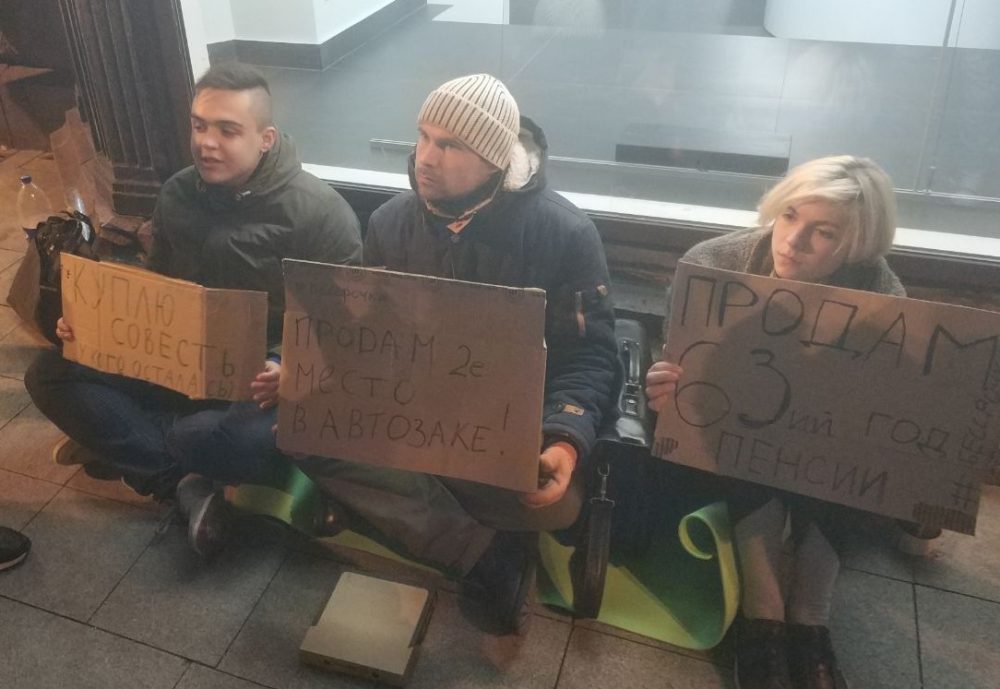 КУПЛЮ
СОВЕСТЬ
У КОГО ОСТАЛАСЬ
ПРОДАМ 2е
МЕСТО
В АВТОЗАКЕ!
ПРОДАМ
63ий ГОД
ПЕНСИИ